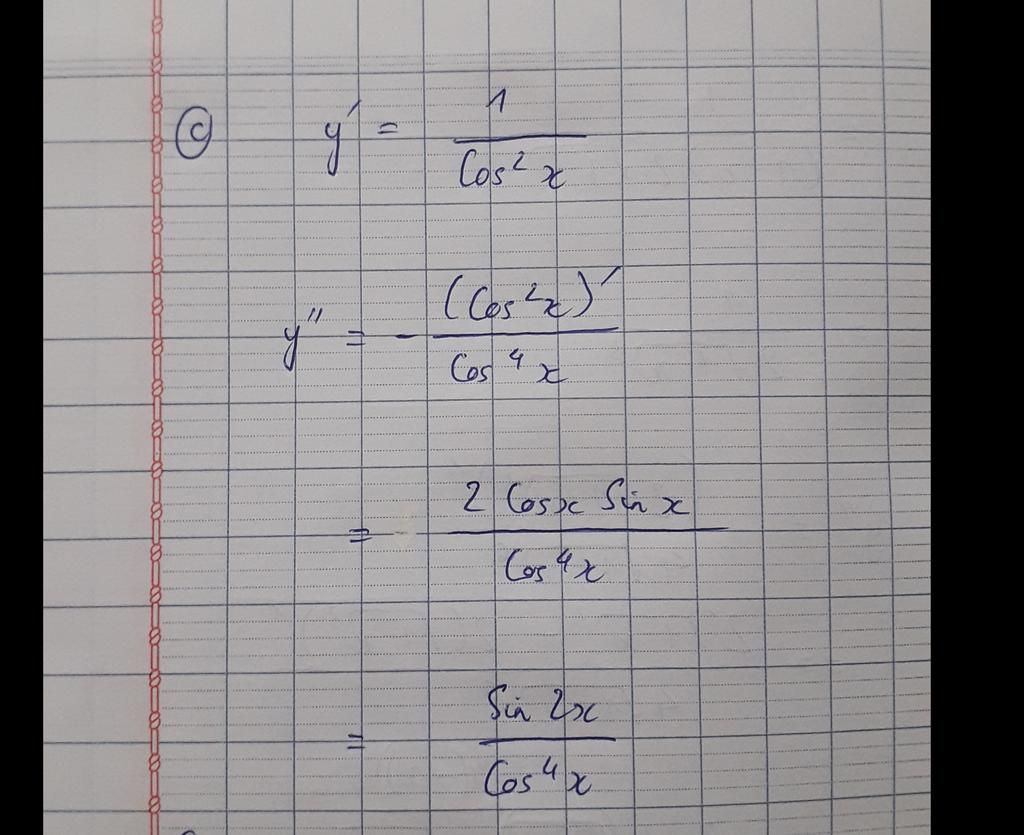 (c) y' = 1 / Cos² x
y'' = - (Cos²x)' / Cos⁴ x
= 2 Cosx Sin x / Cos⁴x
= Sin 2x / Cos⁴x